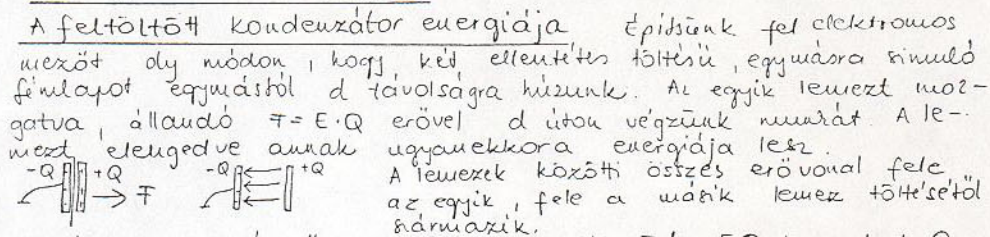 A feltöltött kondenzátor energiája Építsünk fel elektromos
mezőt oly módon, hogy két ellentétes töltésű, egymásra simuló
fémlapot egymástól d távolságra húzunk. Az egyik lemezt moz-
gatva, állandó F = E·Q erővel d úton végzünk munkát. A le-
mezt elengedve annak ugyanekkora energiája lesz.
-Q +Q F -Q +Q A lemezek közötti összes erővonal fele
az egyik, fele a másik lemez töltésétől
származik.